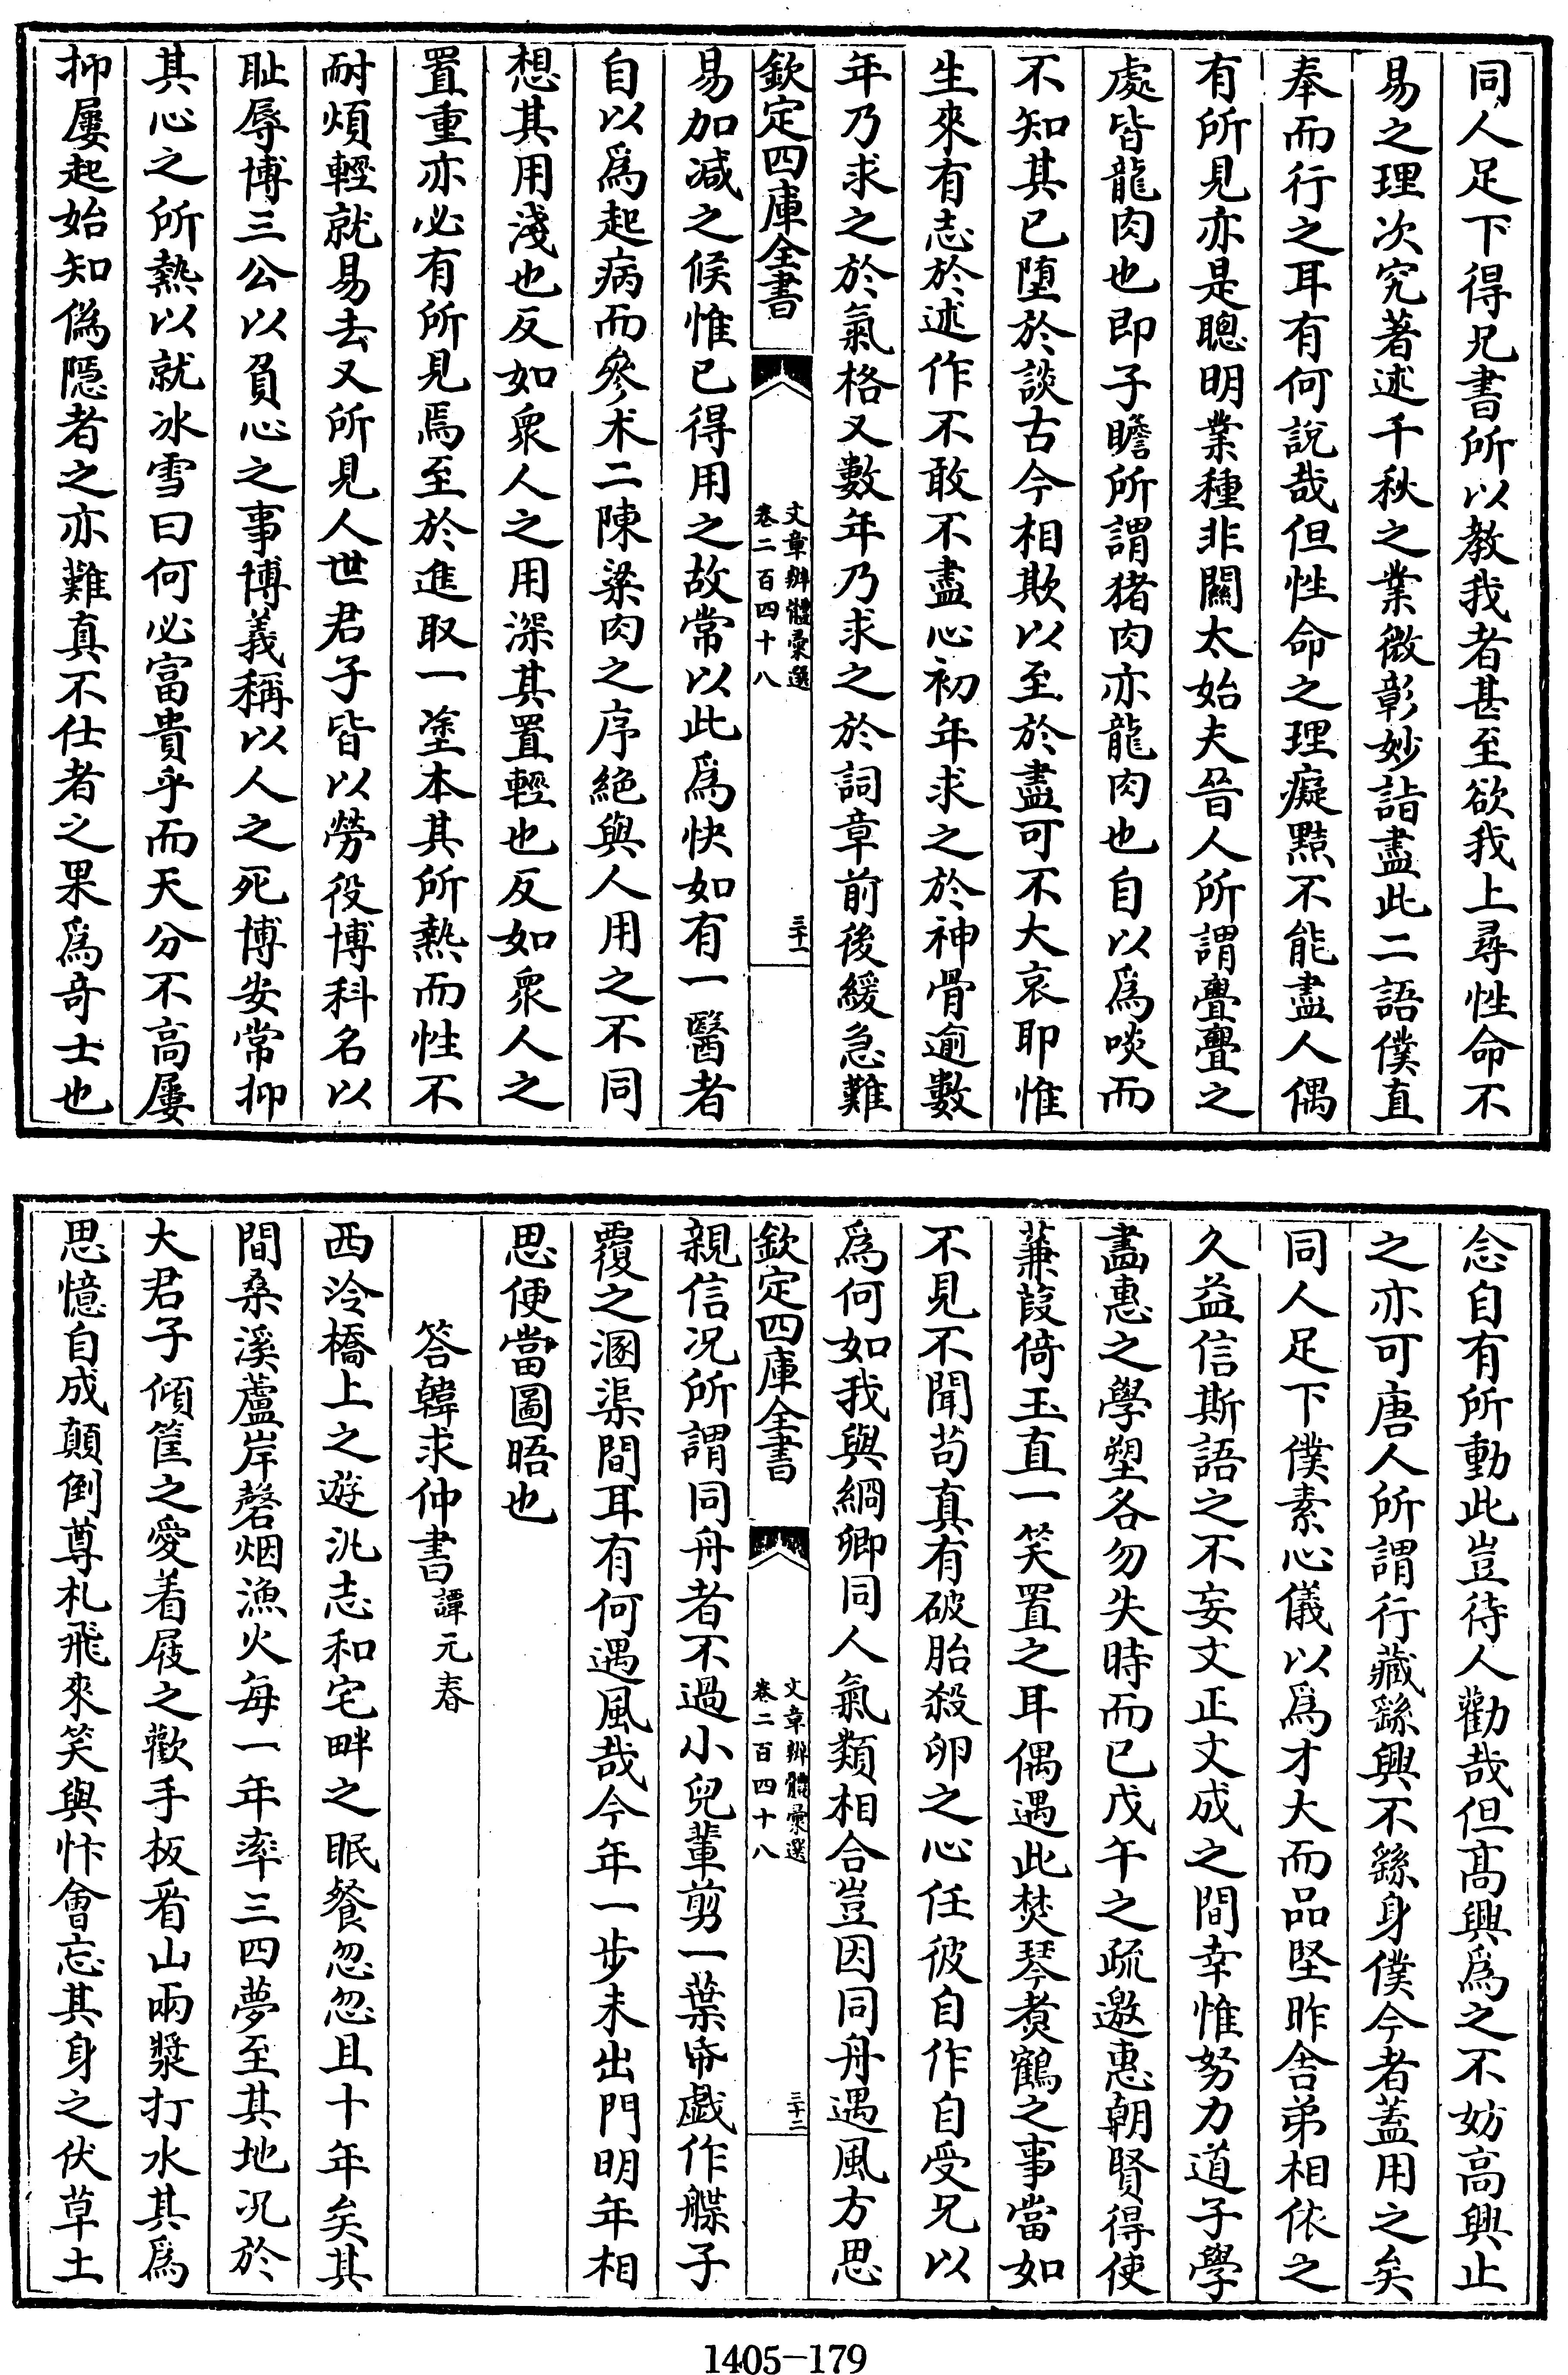 同人足下得兄書所以教我者甚至欲我上尋性命不
易之理次究著述千秋之業微彰妙詣盡此二語僕直
奉而行之耳有何說哉但性命之理癡黠不能盡人偶
有所見亦是聰明業種非關太始夫晉人所謂亹亹之
處皆龍肉也即子瞻所謂猪肉亦龍肉也自以為啖而
不知其已墮於談古今相欺以至於盡可不大哀耶惟
生來有志於述作不敢不盡心初年求之於神骨逾數
年乃求之於氣格又數年乃求之於詞章前後緩急難
欽定四庫全書
文章辨體彙選
卷二百四十八
三十一
易加減之候惟已得用之故常以此為快如有一醫者
自以為起病而參术二陳粱肉之序絕與人用之不同
想其用淺也反如衆人之用深其置輕也反如衆人之
置重亦必有所見焉至於進取一塗本其所熱而性不
耐煩輕就易去又所見人世君子皆以勞役博科名以
耻辱博三公以負心之事博義稱以人之死博安常抑
其心之所熱以就冰雪曰何必富貴乎而天分不高屢
抑屢起始知偽隱者之亦難真不仕者之果為奇士也
念自有所動此豈待人勸哉但高興為之不妨高興止
之亦可唐人所謂行藏繇興不繇身僕今者蓋用之矣
同人足下僕素心儀以為才大而品堅昨舍弟相依之
久益信斯語之不妄文正丈成之間幸惟努力道子學
畵惠之學塑各勿失時而已戊午之疏邀惠朝賢得使
蒹葭倚玉直一笑置之耳偶遇此焚琴煑鶴之事當如
不見不聞苟真有破胎殺卵之心任彼自作自受兄以
為何如我與綱卿同人氣類相合豈因同舟遇風方思
欽定四庫全書
文章辨體彙選
卷二百四十八
三十二
親信况所謂同舟者不過小兒輩剪一葉帋戯作艓子
覆之溷渠間耳有何遇風哉今年一步未出門明年相
思便當圖晤也
答韓求仲書 譚元春
西泠橋上之遊氿志和宅畔之眠餐忽忽且十年矣其
間桑溪蘆岸磬烟漁火每一年率三四夢至其地况於
大君子傾筐之愛着屐之歡手板看山兩槳打水其為
思憶自成顛倒尊札飛來笑與忭會忘其身之伏草土
1405-179